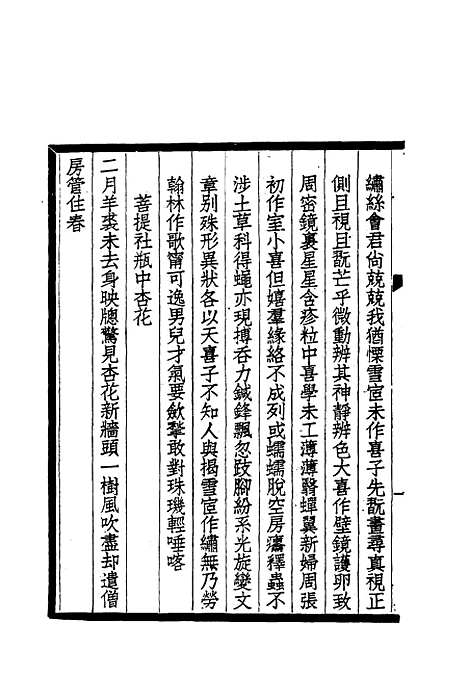 繡絲會君尙兢兢我猶慄雪宧未作喜子先翫畫尋真視正
側且視且翫芒乎微動辨其神靜辨色大喜作壁鏡護卵致
周密鏡裏星星含疹粒中喜學未工薄薄翳蟬翼新婦周張
初作室小喜但嬉羣緣絡不成列或蠕蠕脫空房蘬釋蟲不
涉土草科得蠅亦現搏吞力鍼鋒飄忽跂腳紛系光旋變文
章別殊形異狀各以天喜子不知人與揭雪宧作繡無乃勞
翰林作歌甯可逸男兒才氣要歛鞏敢對珠璣輕唾喀
菩提社瓶中杏花
二月羊裘未去身映牕驚見杏花新牆頭一樹風吹盡却遺僧
房管住春